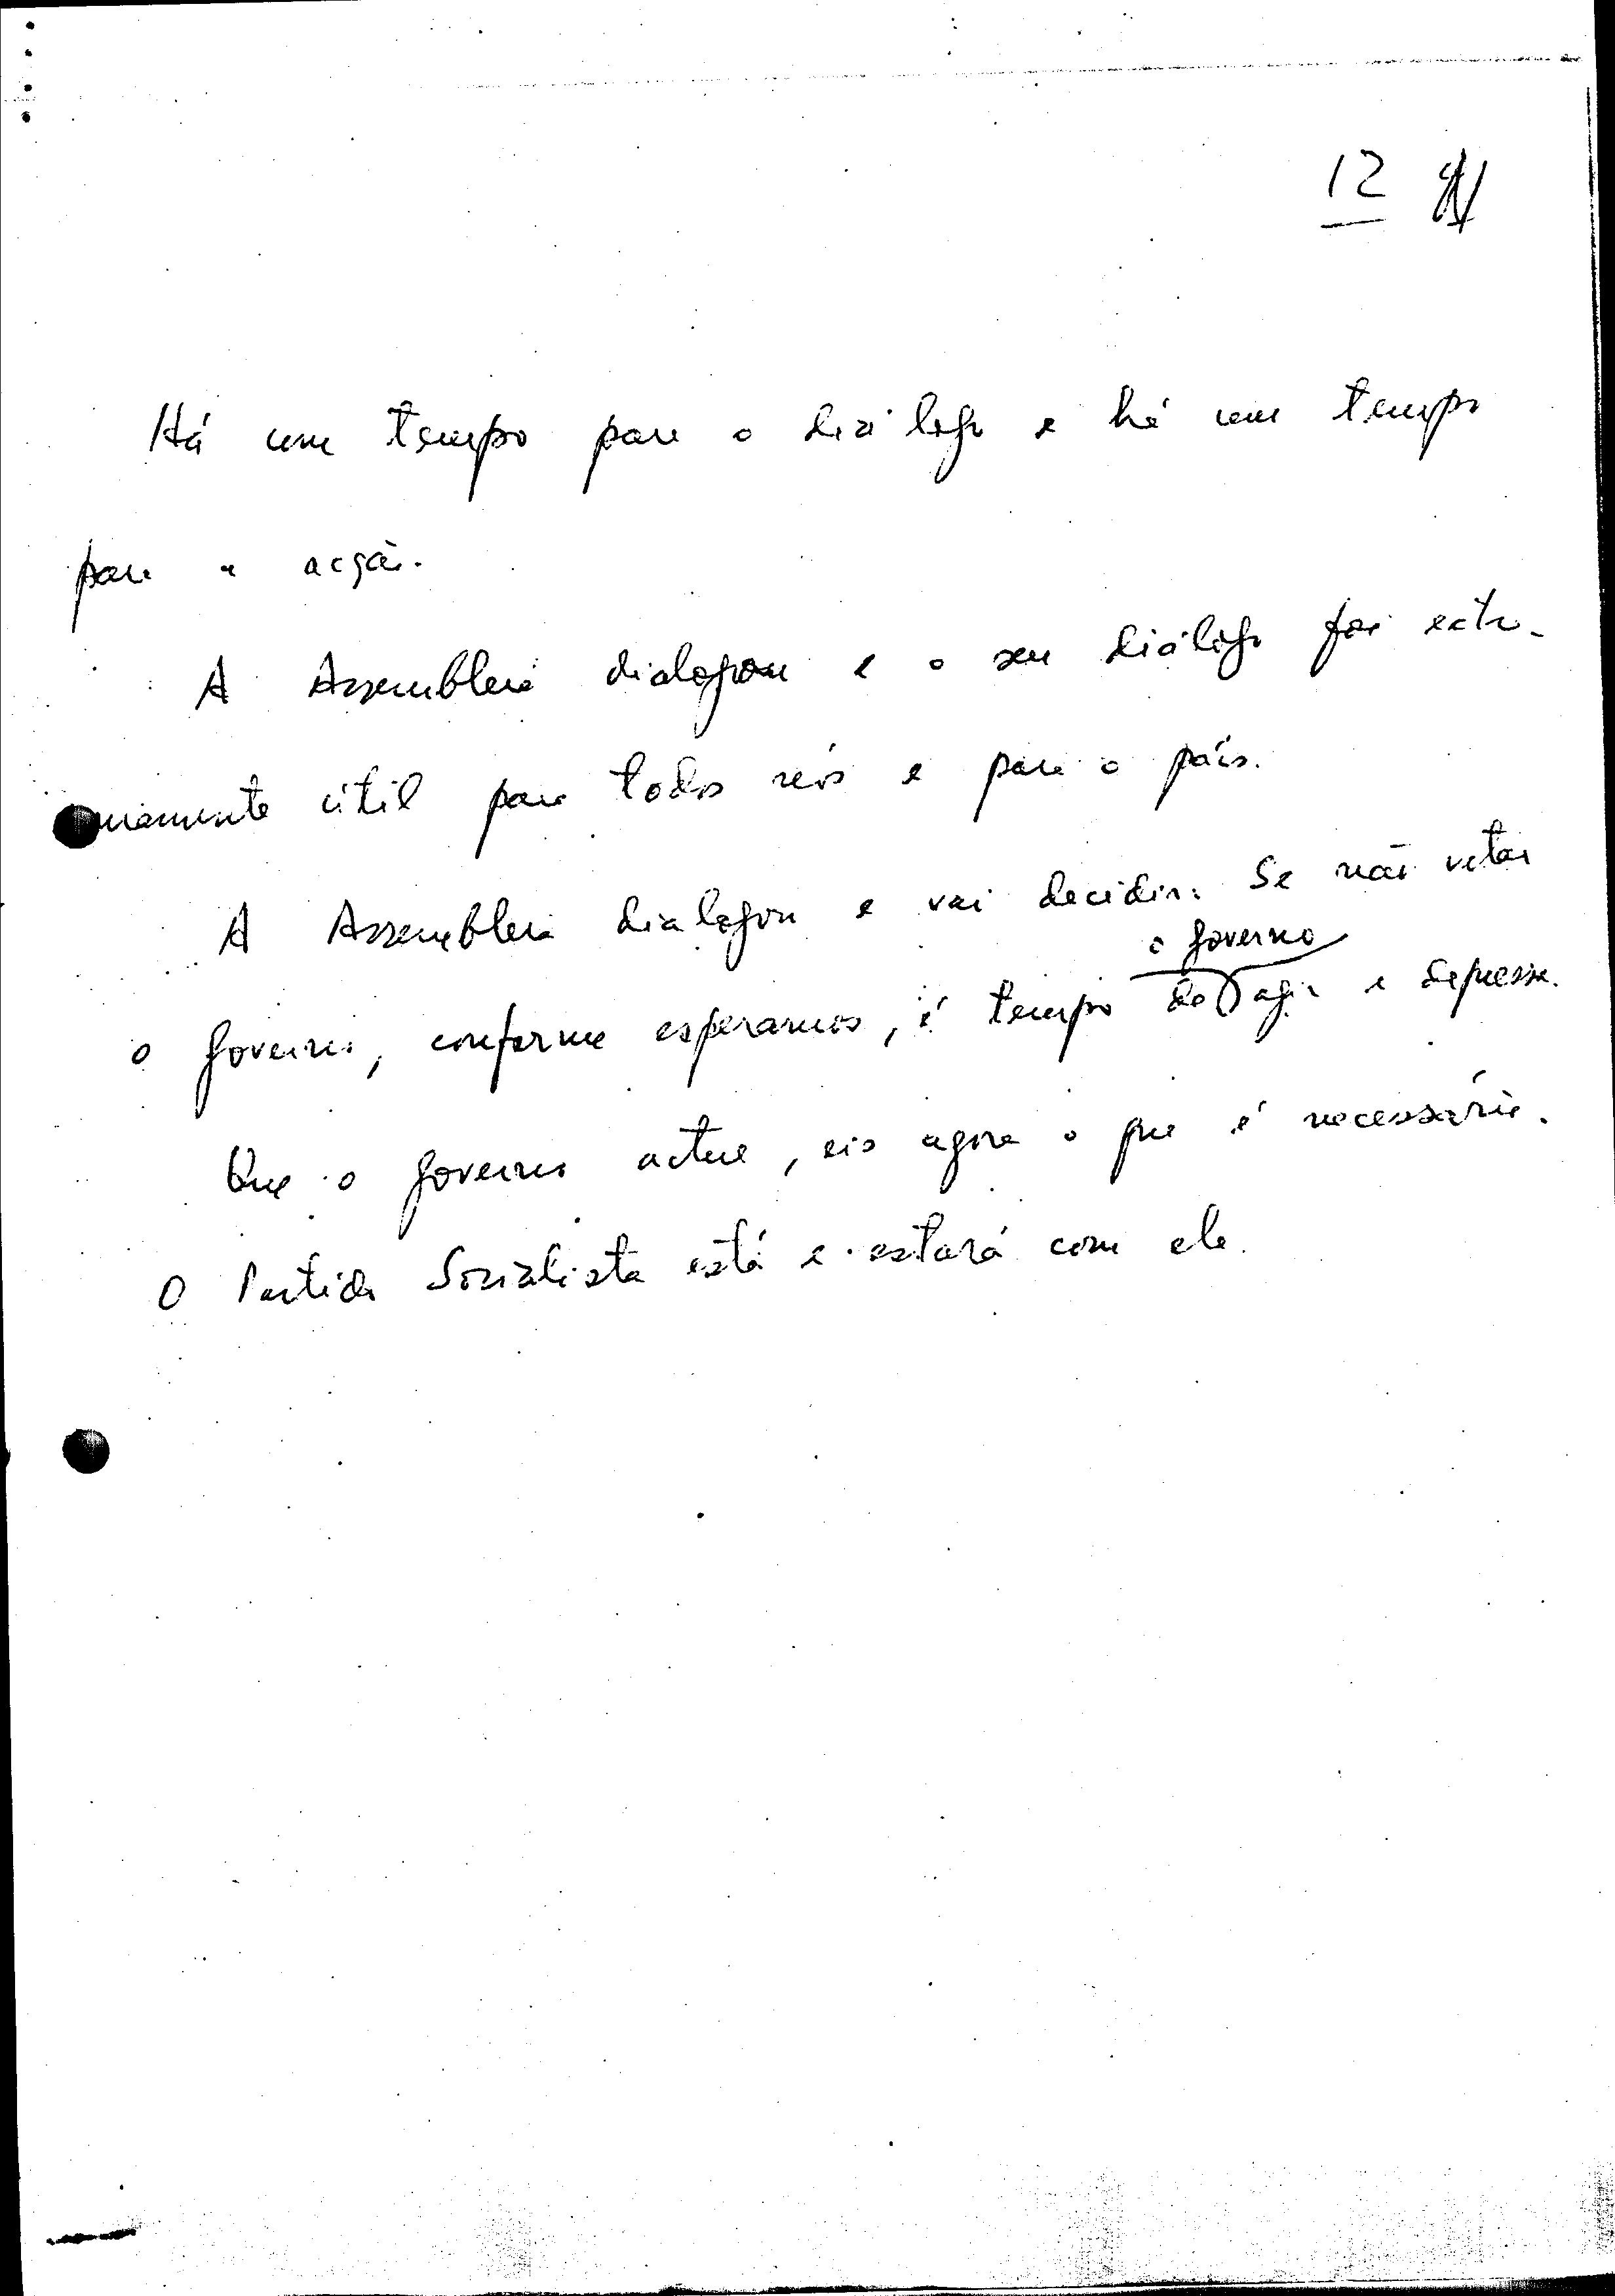 12
Há um tempo para o diálogo e há um tempo
para a acção.
A Assembleia dialogou e o seu diálogo foi extre-
mamente útil para todos nós e para o país.
A Assembleia dialogou e vai decidir. Se não votar
o governo
o governo, conforme esperamos, é tempo de agir e depressa.
Que o governo actue, eis agora o que é necessário.
O Partido Socialista está e estará com ele.